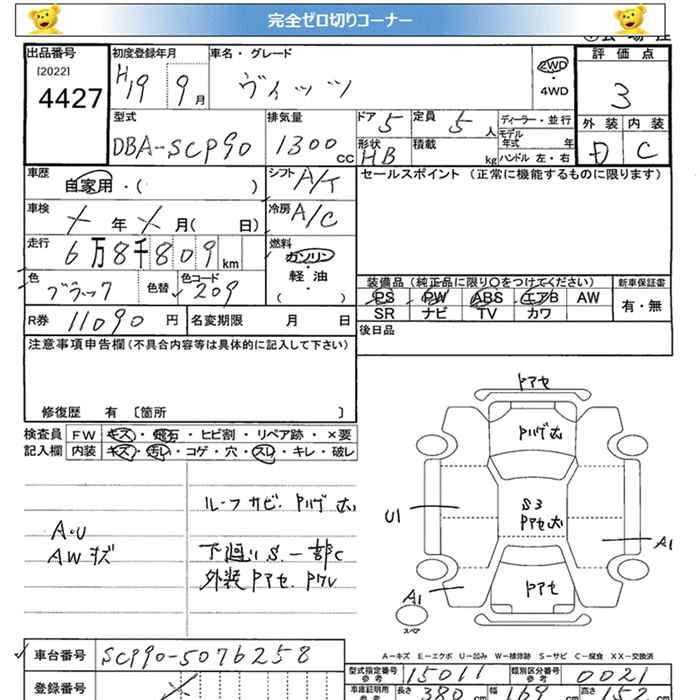 完全ゼロ切りコーナー
出品番号 初度登録年月 車名・グレード 評価点
[2022]
4427 H19 9月 ヴィッツ 2WD・4WD 3
外装 内装
D C
型式 排気量 ドア 5 定員 5人 ディーラー・並行
DBA-SCP90 1300cc 形状 HB 積載 kg モデル年式 年
ハンドル 左・右
車歴 自家用・( ) シフト A/T セールスポイント(正常に機能するものに限ります)
車検 年 月( 日) 冷房 A/C
走行 6万8千809km 燃料 ガソリン・軽・油 ( )
色 ブラック 色替 色コード 209 装備品(純正品に限り○をつけてください) 新車保証書
PS PW ABS エアB AW 有・無
R券 11090円 名変期限 月 日 SR ナビ TV カワ
後日品
注意事項申告欄(不具合内容等は具体的に記入して下さい)
修復歴 有 〔箇所 〕
検査員 FW キズ・飛石・ヒビ割・リペア跡・×要
記入欄 内装 キズ・汚れ・コゲ・穴・スレ・キレ・破レ
A・U
AWキズ
ルーフサビ.Pハゲ大
下廻りS.一部C
外装Pアセ.Pクレ
Pアセ
Pハゲ大
U1
S3
Pアセ大
A1
A1
Pアセ
スペア
A-キズ E-エクボ U-凹み W-補修跡 S-サビ C-腐食 XX-交換済
車台番号 SCP90-5076258
登録番号
型式指定番号 参考 15011 類別区分番号 参考 0021
車庫証明用 参考 長さ 380cm 幅 169cm 高さ 152cm